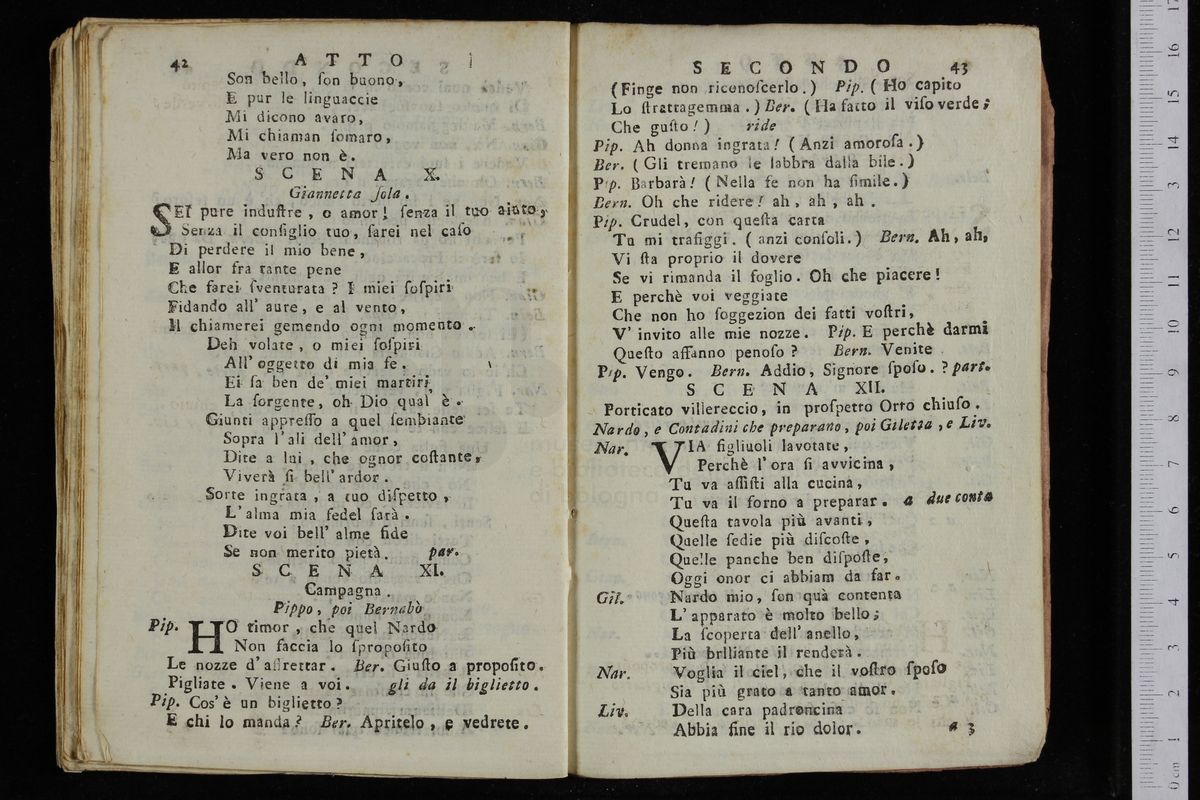 42 ATTO
Son bello, ſon buono,
E pur le linguaccie
Mi dicono avaro,
Mi chiaman ſomaro,
Ma vero non è.
SCENA X.
Giannetta ſola.
SEI pure induſtre, o amor! ſenza il tuo aiuto,
Senza il conſiglio tuo, ſarei nel caſo
Di perdere il mio bene,
E allor fra tante pene
Che farei ſventurata? I miei ſoſpiri
Fidando all' aure, e al vento,
Il chiamerei gemendo ogni momento.
Deh volate, o miei ſoſpiri
All' oggetto di mia fe.
Ei ſa ben de' miei martiri
La ſorgente, oh Dio qual è.
Giunti appreſſo a quel ſembiante
Sopra l'ali dell' amor,
Dite a lui, che ognor coſtante,
Viverà ſi bell' ardor.
Sorte ingrata, a tuo diſpetto,
L'alma mia fedel ſarà.
Dite voi bell' alme fide
Se non merito pietà. par.
SCENA XI.
Campagna.
Pippo, poi Bernabò
Pip. HO timor, che quel Nardo
Non faccia lo ſpropoſito
Le nozze d'affrettar. Ber. Giuſto a propoſito.
Pigliate. Viene a voi. gli da il biglietto.
Pip. Cos' è un biglietto?
E chi lo manda? Ber. Apritelo, e vedrete.
SECONDO 43
(Finge non riconoſcerlo.) Pip. (Ho capito
Lo ſtrattagemma.) Ber. (Ha fatto il viſo verde;
Che guſto!) ride
Pip. Ah donna ingrata! (Anzi amoroſa.)
Ber. (Gli tremano le labbra dalla bile.)
Pip. Barbarà! (Nella fe non ha ſimile.)
Bern. Oh che ridere! ah, ah, ah.
Pip. Crudel, con queſta carta
Tu mi trafiggi. (anzi conſoli.) Bern. Ah, ah,
Vi ſta proprio il dovere
Se vi rimanda il foglio. Oh che piacere!
E perchè voi veggiate
Che non ho ſoggezion dei fatti voſtri,
V' invito alle mie nozze. Pip. E perchè darmi
Queſto affanno penoſo? Bern. Venite
Pip. Vengo. Bern. Addio, Signore ſpoſo.? part.
SCENA XII.
Porticato villereccio, in proſpetto Orto chiuſo.
Nardo, e Contadini che preparano, poi Giletta, e Liv.
Nar. VIA figliuoli lavotate,
Perchè l'ora ſi avvicina,
Tu va aſſiſti alla cucina,
Tu va il forno a preparar. a due conta
Queſta tavola più avanti,
Quelle ſedie più diſcoſte,
Quelle panche ben diſpoſte,
Oggi onor ci abbiam da far.
Gil. Nardo mio, ſon quà contenta
L' apparato è molto bello;
La ſcoperta dell' anello,
Più brlliante il renderà.
Nar. Voglia il ciel, che il voſtro ſpoſo
Sia più grato a tanto amor.
Liv. Della cara padroncina
Abbia fine il rio dolor. a 3